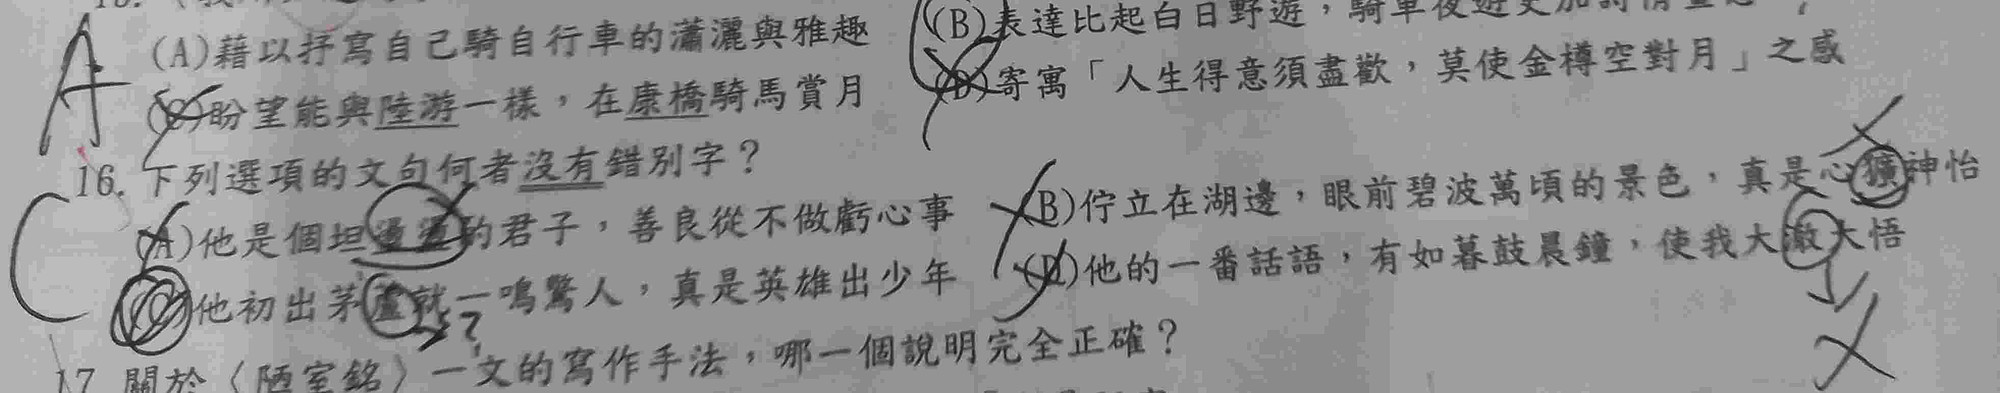 (A)藉以抒寫自己騎自行車的瀟灑與雅趣
(B)表達比起白日野遊，騎車夜遊更加詩情畫意
(C)盼望能與陸游一樣，在康橋騎馬賞月
(D)寄寓「人生得意須盡歡，莫使金樽空對月」之感
A
16. 下列選項的文句何者沒有錯別字？
(A)他是個坦盪盪的君子，善良從不做虧心事
(B)佇立在湖邊，眼前碧波萬頃的景色，真是心獷神怡
(C)他初出茅廬就一鳴驚人，真是英雄出少年
(D)他的一番話語，有如暮鼓晨鐘，使我大澈大悟
C
?
17. 關於〈陋室銘〉一文的寫作手法，哪一個說明完全正確？